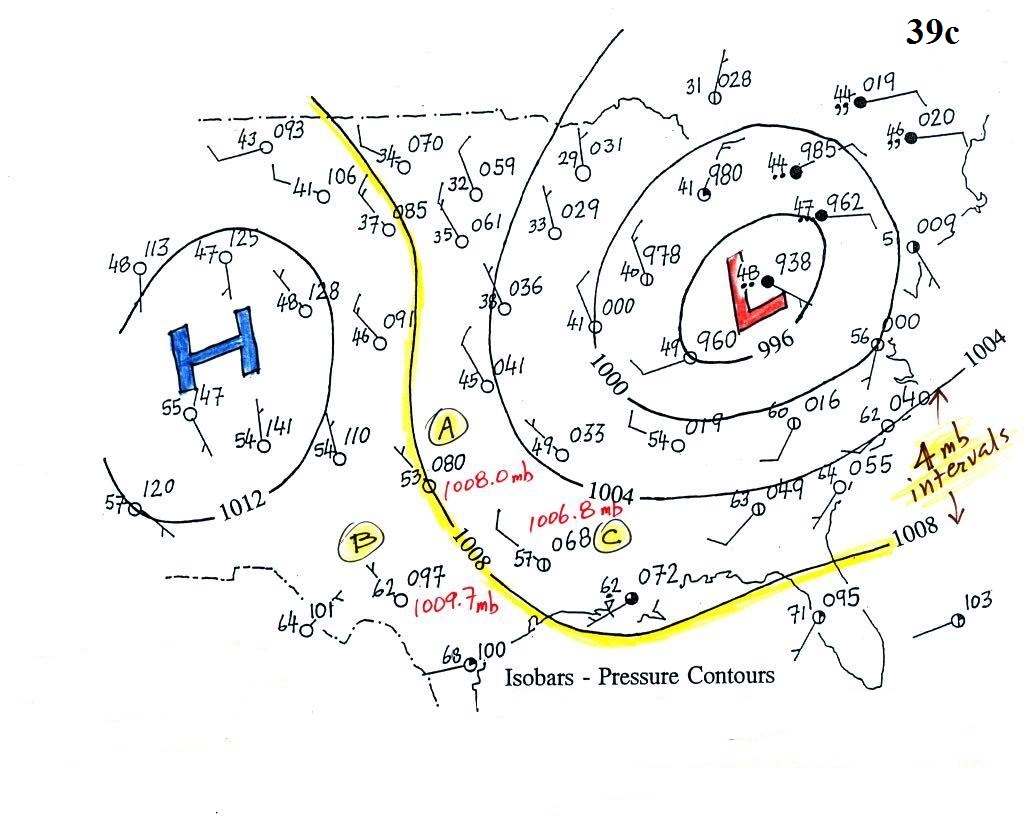 39c
31 028
44 019
,,
46 020
,,
43 093
34 070
29 031
44 985
41 106
32 059
41 980
47 962
37 085
35 061
33 029
5 009
48 113
47 125
40 978
48 938
48 128
38 036
H
L
46 091
41 000
49 960
996
56 000
1004
1000
45 041
55 147
54 141
54 110
49 033
54 019
60 016
62 040
4 mb
intervals
A
53 080
1008.0 mb
1004
63 049
64 055
57 120
1012
1006.8 mb
57 068 C
1008
1008
B
62 097
1009.7 mb
62 072
64 101
71 095
103
68 100
Isobars - Pressure Contours